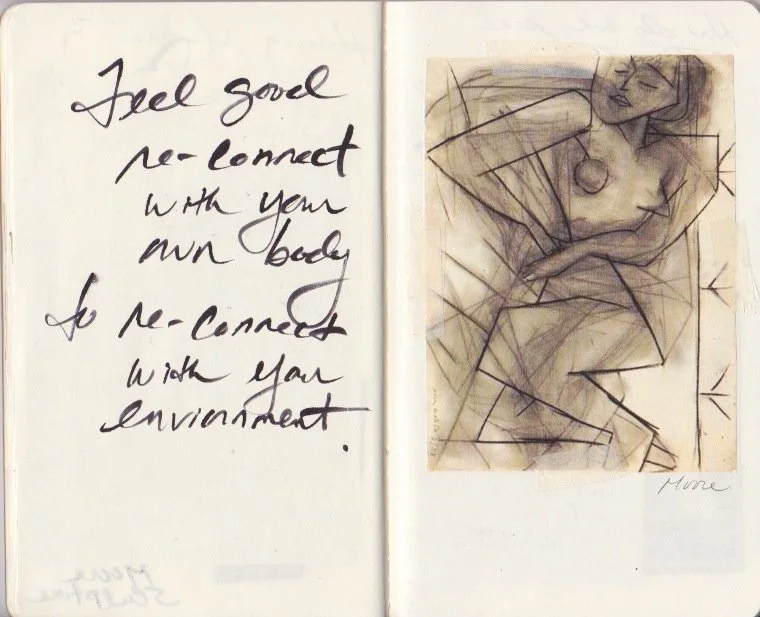 Feel good
re-connect
with your
own body
to re-connect
with your
enviornment.
Moore
Moore
Sculpture